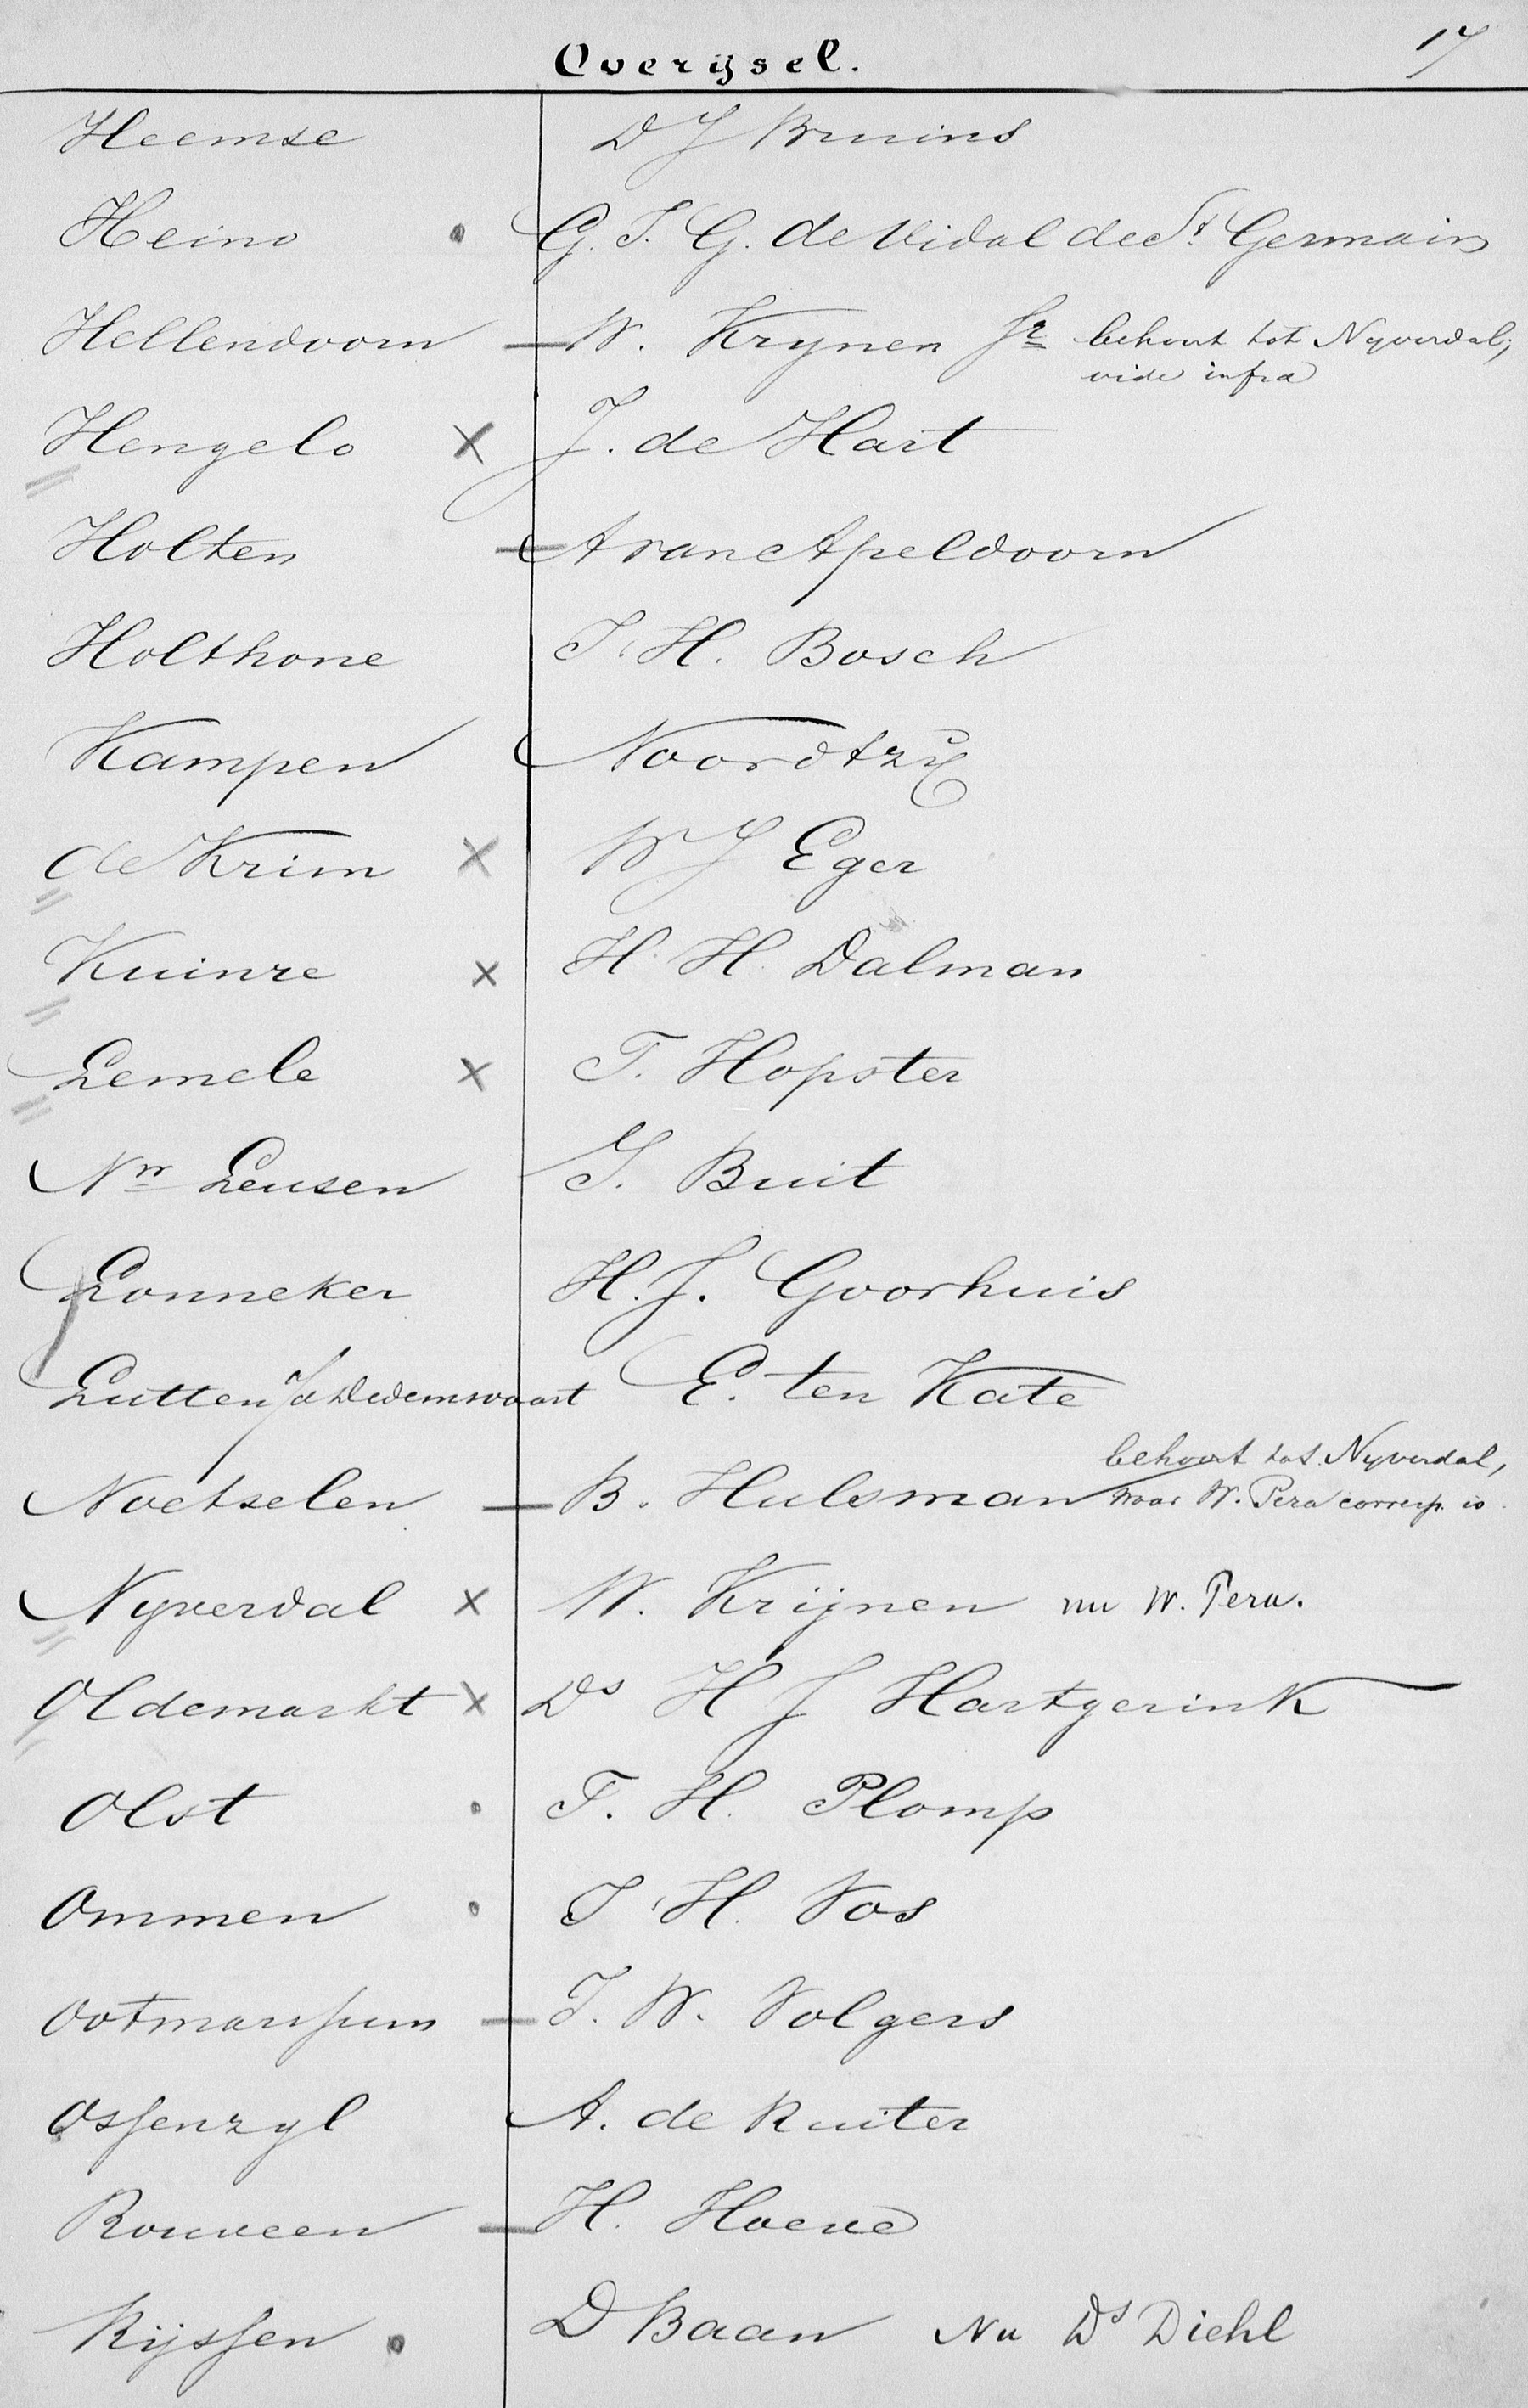 Overijsel. 17
Heemse D J Bruins
Heino • G. J. G. de Vidal de St. Germain
Hellendoorn — W. Krynen Jr behoort tot Nyverdal;
vide infra
Hengelo × J. de Hart
Holten — A van Apeldoorn
Holthone J. H. Bosch
Kampen Noordtzij
de Krim × W J Eger
Kuinre × H. H. Dalman
Lemele × T. Hopster
Nw Leusen G. Buit
Lonneker H. J. Goorhuis
Lutten a/d Dedemsvaart E. ten Kate
behoort tot Nyverdal,
Noetselen — B. Hulsman waar W. Pera corresp. is.
Nyverdal × W. Krijnen nu W. Pera.
Oldemarkt × Ds H J Hartgerink
Olst • F. H. Plomp
Ommen • J. H. Vos
Ootmarssum — J. W. Volgers
Ossenzyl A. de Ruiter
Rouveen — H. Hoeve
Rijssen • D Baan Nu Ds Diehl